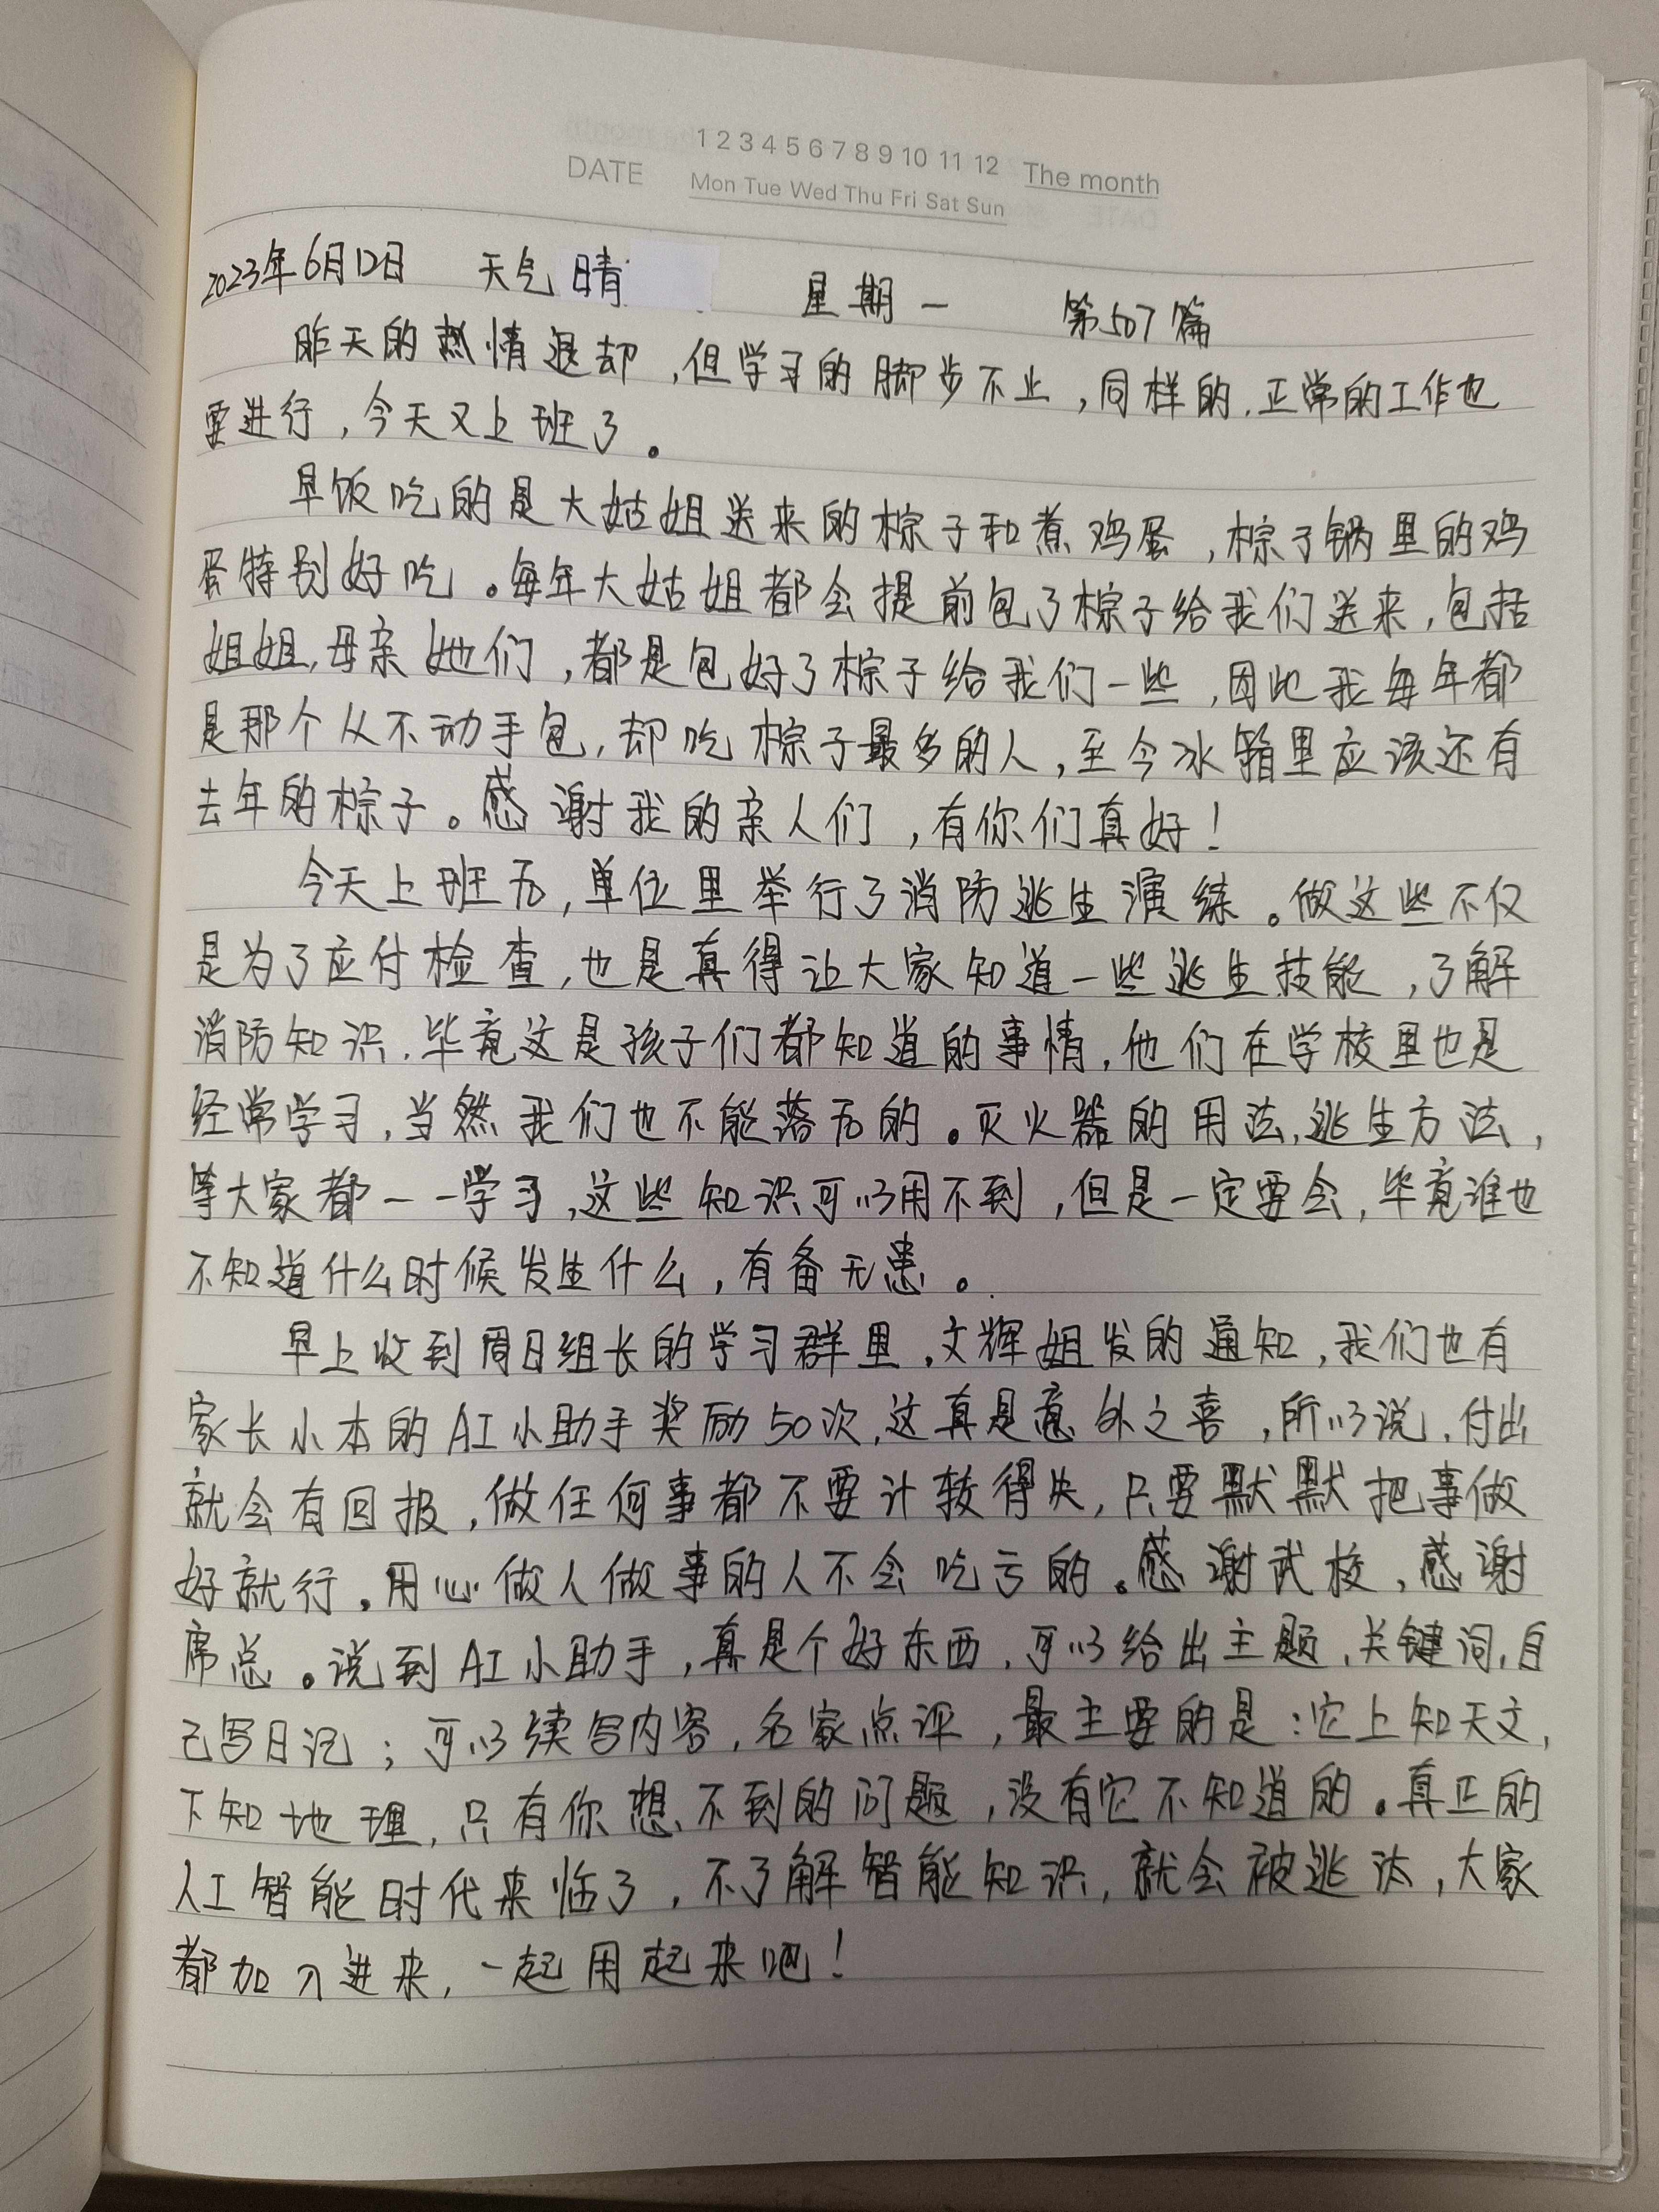 1 2 3 4 5 6 7 8 9 10 11 12 The month
DATE Mon Tue Wed Thu Fri Sat Sun
2023年6月12日 天气 晴 星期一 第507篇
昨天的热情退却,但学习的脚步不止,同样的,正常的工作也
要进行,今天又上班了。
早饭吃的是大姑姐送来的粽子和煮鸡蛋,粽子锅里的鸡
蛋特别好吃。每年大姑姐都会提前包了粽子给我们送来,包括
姐姐,母亲她们,都是包好了粽子给我们一些,因此我每年都
是那个从不动手包,却吃粽子最多的人,至今冰箱里应该还有
去年的粽子。感谢我的亲人们,有你们真好!
今天上班后,单位里举行了消防逃生演练。做这些不仅
是为了应付检查,也是真得让大家知道一些逃生技能,了解
消防知识,毕竟这是孩子们都知道的事情,他们在学校里也是
经常学习,当然我们也不能落后的。灭火器的用法,逃生方法,
等大家都一一学习,这些知识可以用不到,但是一定要会,毕竟谁也
不知道什么时候发生什么,有备无患。
早上收到周日组长的学习群里,文辉姐发的通知,我们也有
家长小本的AI小助手奖励50次,这真是意外之喜,所以说,付出
就会有回报,做任何事都不要计较得失,只要默默把事做
好就行。用心做人做事的人不会吃亏的。感谢武校,感谢
席总。说到AI小助手,真是个好东西,可以给出主题,关键词,自
己写日记;可以续写内容,名家点评,最主要的是:它上知天文,
下知地理,只有你想不到的问题,没有它不知道的。真正的
人工智能时代来临了,不了解智能知识,就会被逃汰,大家
都加入进来,一起用起来吧!